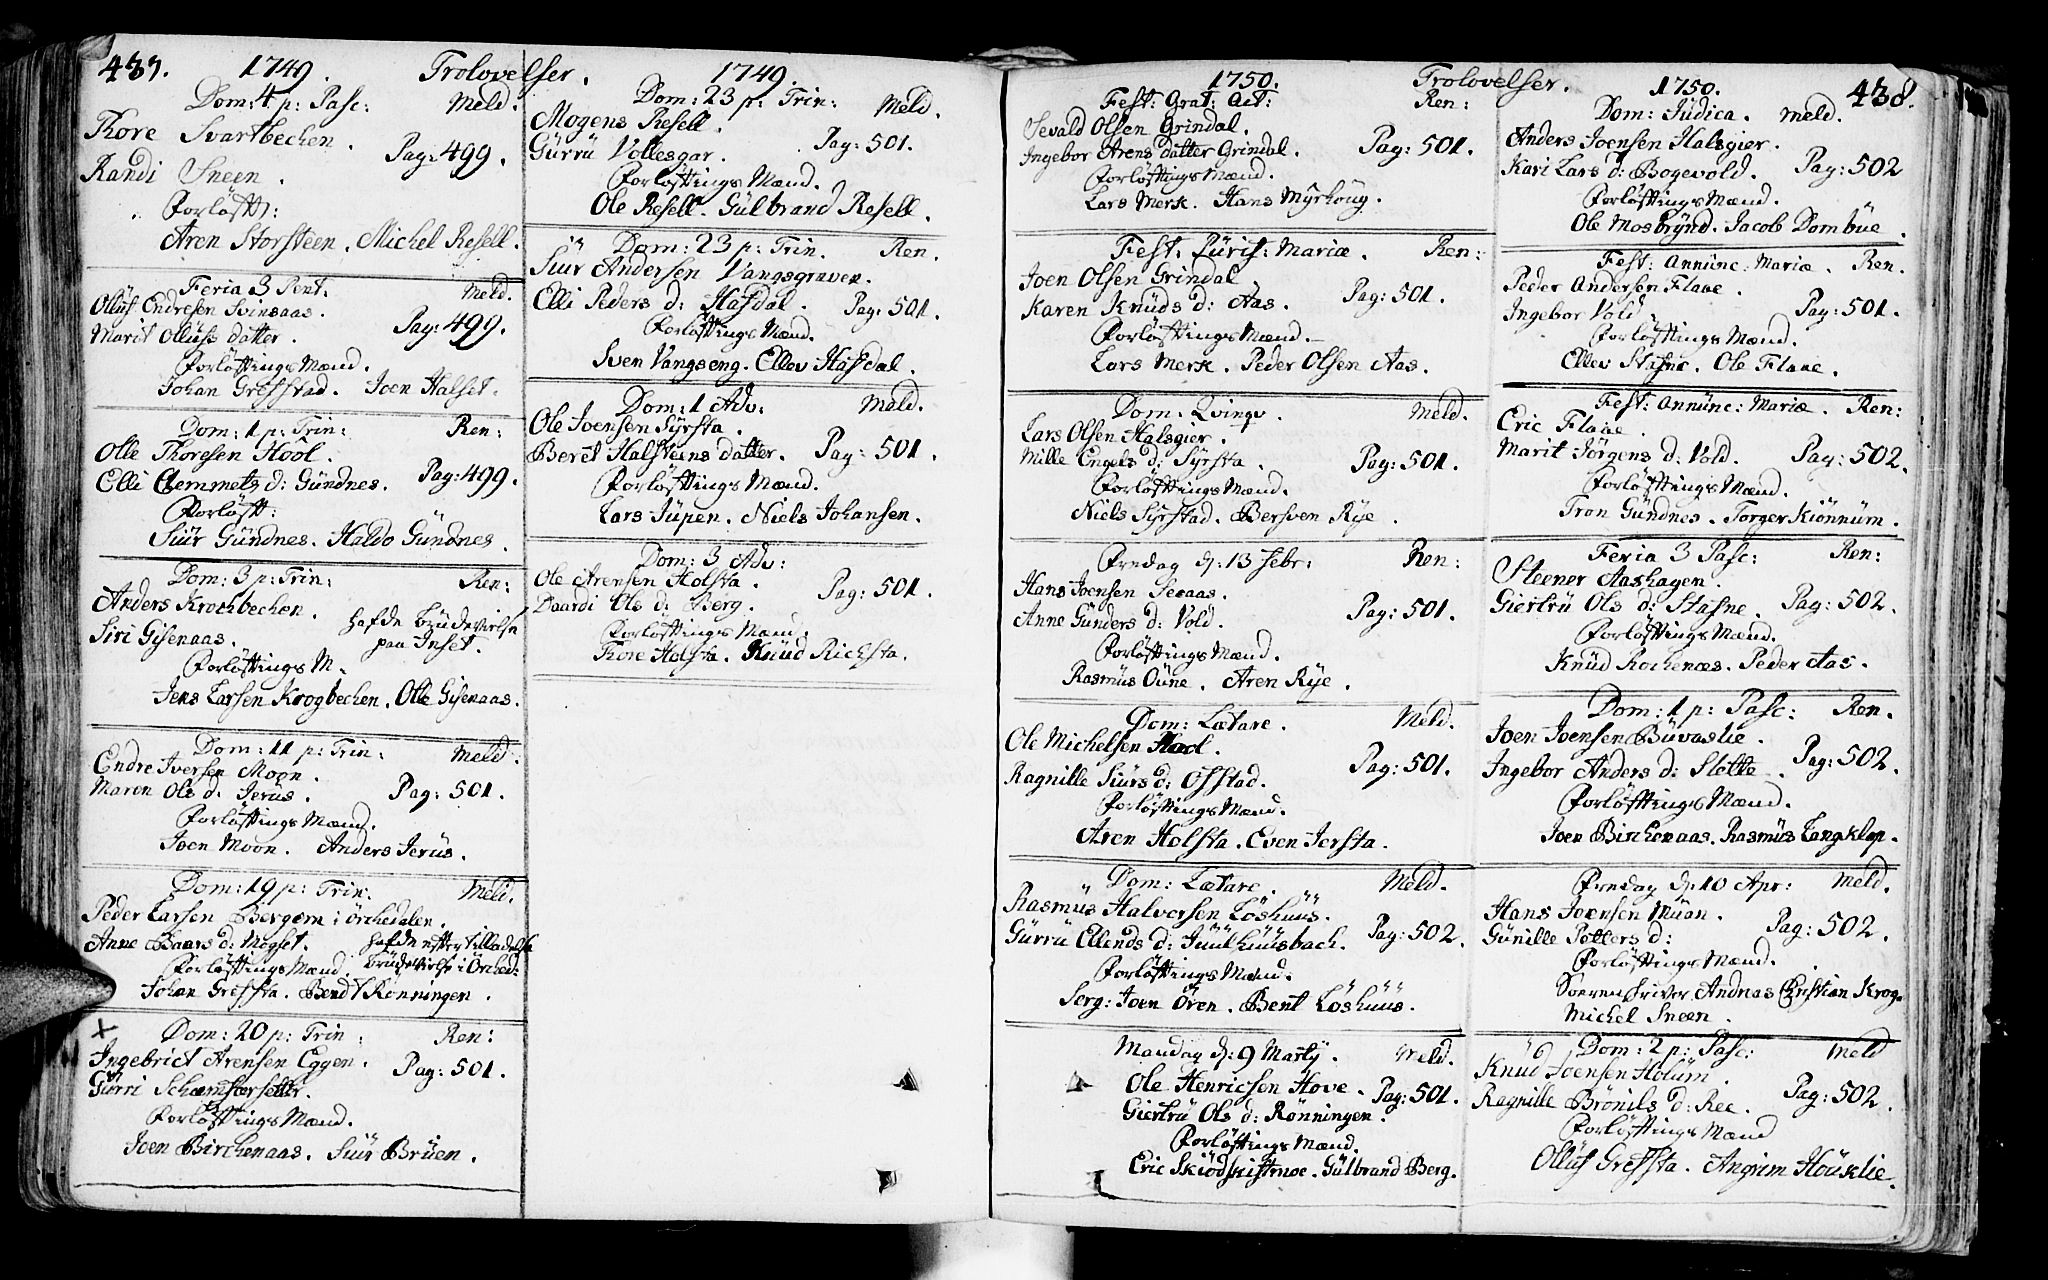 437. 1749. Trolovelser.
Dom: 4 p: Pasc: Meld:
Thore Svartbechen.
Randi Sneen. Pag: 499.
Forløfft:
Aren Storsteen. Michel Resell.
Feria 3 Pent. Meld.
Olluf Endresen Svinsaas.
Marit Ollufs datter. Pag: 499.
Forløfftings Mænd.
Johan Grefstad. Joen Halset.
Dom: 1 p: Trin: Ren:
Olle Thoresen Hool.
Elli Clemmets d: Gündnes. Pag: 499.
Forløfft:
Siür Gündnes. Haldo Gündnes.
Dom: 3 p: Trin: Ren:
Anders Krochbechen.
Siri Gisenaas. hafde brudevielse paa Inset.
Forløfftings M.
Jens Larsen Krogbechen. Olle Gisenaas.
Dom: 11 p: Trin: Meld:
Endre Iversen Moon.
Maren Ols d: Jerüs. Pag: 501.
Forløfftings Mænd.
Joen Moon. Anders Jerüs.
Dom: 19 p: Trin. Meld.
Peder Larsen Bergem i Örchedalen.
Anne Baars d: Megset. hafde efter tilladelse
Forløfftings Mænd. brudevielse i Örched:
Johan Grefsta. Bendt Rønningen.
x Dom: 20 p: Trin: Ren:
Ingebrict Arensen Eggen.
Gürri Schamfærseter. Pag: 501.
Forløfftings Mænd.
Joen Birchenaas. Siür Brüen.
1749.
Dom: 23 p: Trin: Meld.
Mogens Resell.
Gürrü Vollesgar. Pag: 501.
Forløfftings Mænd.
Ole Resell. Gülbrand Resell.
Dom: 23 p: Trin. Ren.
Siür Andersen Vangsgraven.
Elli Peders d: Hafdal. Pag: 501.
Forløfftings Mænd.
Sven Vangseng. Ellev Hafdal.
Dom: 1 Adv: Meld.
Ole Joensen Syrsta.
Beret Halsteens datter. Pag: 501.
Forløfftings Mænd.
Lars Jüpen. Niels Johansen.
Dom: 3 Adv:
Ole Arensen Holsta.
Daardi Ols d: Berg. Pag: 501.
Forløfftings Mænd.
Thore Holsta. Knüd Richsta.
1750. Trolovelser.
Fest: Grat: Act: Ren:
Sevald Olsen Grindal.
Ingebor Arens datter Grindal. Pag: 501.
Forløfftings Mænd.
Lars Merk. Hans Myrhoug.
Fest: Pürif: Mariæ. Ren:
Joen Olsen Grindal
Karen Knüds d: Aas. Pag: 501.
Forløfftings Mænd.
Lars Merk. Peder Olsen Aas.
Dom: Qvinqv. Meld.
Lars Olsen Halsgier.
Mille Engels d: Syrsta. Pag: 501.
Forløfftings Mænd.
Niels Syrstad. Bersven Rye.
Fredag d: 13 Febr: Ren:
Hans Joensen Seeaas.
Anne Gunders d: Vold. Pag: 501.
Forløfftings Mænd.
Rasmüs Oüne. Aren Rye.
Dom: Lætare. Meld.
Ole Michelsen Hool.
Ragnille Siürs d: Ofstad. Pag: 501.
Forløfftings Mænd.
Aren Holsta. Even Jersta.
Dom: Lætare. Meld.
Rasmüs Halvorsen Løshüüs.
Gürrü Ellends d: Jüülhüüsbach. Pag: 502.
Forløfftings Mænd.
Serg: Joen Ören. Bent Løshüüs.
Mandag d: 9 Martij. Meld.
Ole Henricsen Hove. Pag: 501.
Giertrü Ols d: Rønningen.
Forløfftings Mænd.
Eric Skiødskistmoe. Gülbrand Berg.
1750. 438.
Dom: Jüdica. Meld.
Anders Joensen Halsgier.
Kari Lars d: Bogevold. Pag: 502
Forløfftings Mænd.
Ole Mosbrynd. Jacob Dombüe.
Fest: Annünc: Mariæ. Ren.
Peder Andersen Flaae.
Ingebor Vold. Pag: 501.
Forløfftings Mænd.
Ellev Stafne. Ole Flaae.
Fest: Annünc: Mariæ. Ren:
Eric Flaae.
Marit Jörgens d: Vold. Pag: 502.
Forløfftings Mænd.
Tron Gündnes. Torger Kiønnüm.
Feria 3 Pasc: Ren:
Steener Aashagen.
Giertrü Ols d: Stafne. Pag: 502.
Forløfftings Mænd.
Knüd Rochenæs. Peder Aas.
Dom: 1 p: Pasc: Ren.
Joen Joensen Büvaslie.
Ingebor Anders d: Slette. Pag: 502.
Forløfftings Mænd.
Joen Birchenaas. Rasmüs Langklop.
Fredag d: 10 Apr: Meld.
Hans Joensen Müan.
Günille Potters d: Pag: 502.
Forløfftings Mænd.
Sorenskriver Andreas Christian Krog.
Michel Sneen.
Dom: 2 p: Pasc: Meld
Knüd Joensen Holüm.
Ragnille Brönils d: Ree. Pag: 502.
Forløfftings Mænd
Ollüf Grefsta. Angrim Höüklie.